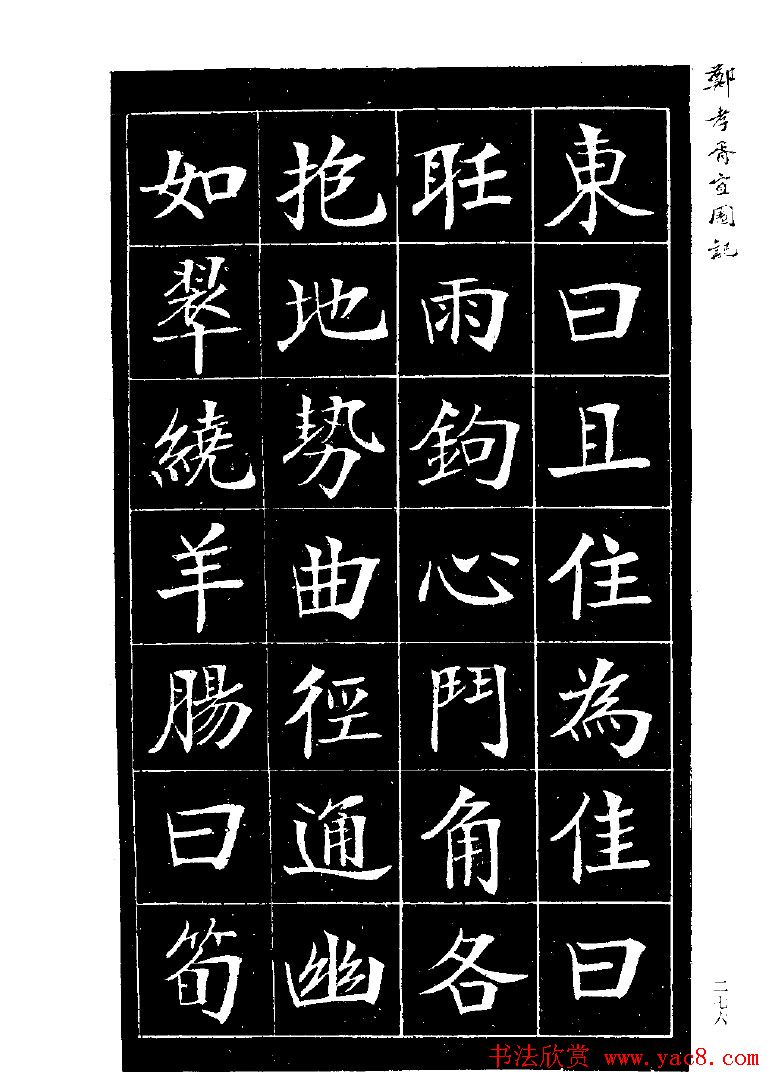 鄭孝胥宜園記
東曰且住為佳曰
聽雨鉤心鬥角各
抱地勢曲徑通幽
如翠繞羊腸曰筍
二七六
书法欣赏 www.yac8.com